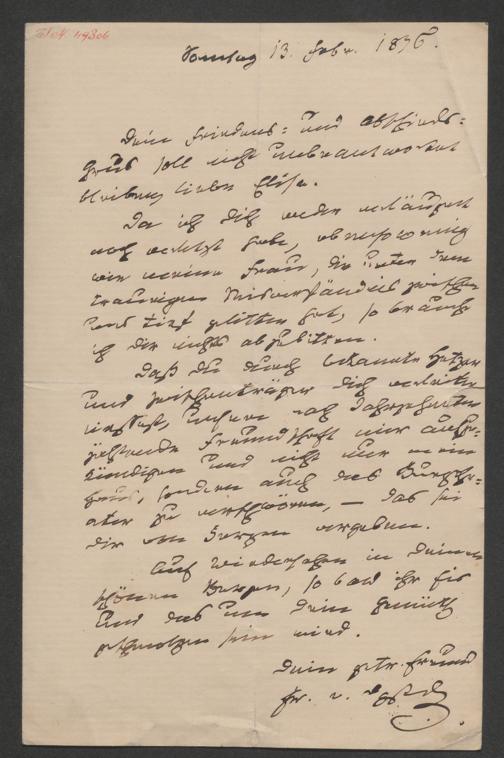 I.N. 49306
Sonntag 13. Febr. 1876.
Dein Friedens- und Abschieds-
gruß soll nicht unbeantwortet
bleiben, liebe Elise.
Da ich Dich weder verläugnet
noch verletzt habe, ebensowenig
wie meine Frau, die unter dem
traurigen Misverständnis zwischen
uns tief gelitten hat, so brauche
ich Dir nichts abzubitten.
Daß Du durch bekannte Hetzer
und Zwischenträger Dich verleiten
liessest, unsere nach Jahrzehnten
zählende Freundschaft mir aufzu-
kündigen und nicht nur mein
Haus, sondern auch das Burgthe-
ater zu verschwören, — das sei
Dir von Herzen vergeben.
Auf Wiedersehen in Deinem
schönen Bergen, so bald ihr Eis
und das um Dein Gemüth
geschmolzen sein wird.
Dein getr. Freund
Fr. v.